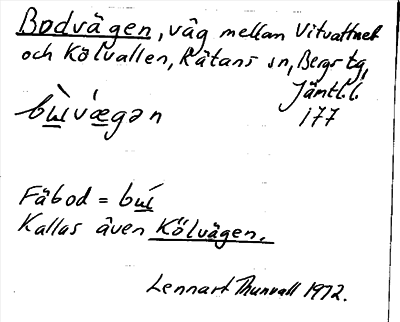 Bodvägen, väg mellan Vitvattnet
och Kölvallen, Rätans sn, Bergs tg,
Jämtl.l.
bɯ̀vǽgən 177
Fäbod = bɯ́
Kallas även Kölvägen.
Lennart Thunvall 1972.